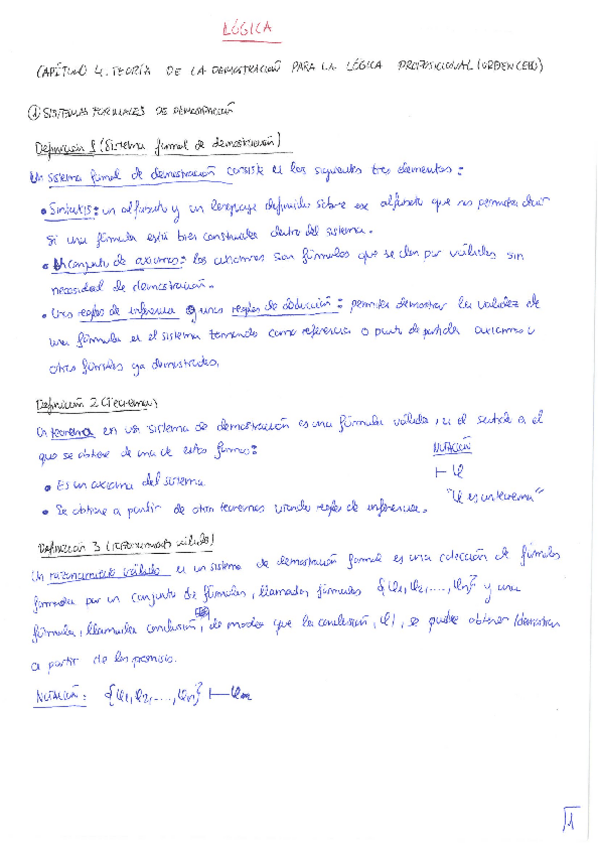 LÓGICA
CAPÍTULO 4. TEORÍA DE LA DEMOSTRACIÓN PARA LA LÓGICA PROPOSICIONAL (ORDEN CERO)
① SISTEMAS FORMALES DE DEMOSTRACIÓN
Definición 1 (Sistema formal de demostración)
Un sistema formal de demostración consiste en los siguientes tres elementos:
• Sintaxis: un alfabeto y un lenguaje definido sobre ese alfabeto que nos permite decir
si una fórmula está bien construida dentro del sistema.
• Un conjunto de axiomas: los axiomas son fórmulas que se dan por válidas sin
necesidad de demostración.
• Unas reglas de inferencia o unas reglas de deducción: permiten demostrar la validez de
una fórmula en el sistema tomando como referencia o punto de partida axiomas u
otras fórmulas ya demostradas.
Definición 2 (Teorema)
Un teorema en un sistema de demostración es una fórmula válida, en el sentido en el
que se obtiene de una de estas formas:
NOTACIÓN
⊢ φ
"φ es un teorema"
• Es un axioma del sistema
• Se obtiene a partir de otros teoremas usando reglas de inferencia.
Definición 3 (razonamiento válido)
Un razonamiento válido en un sistema de demostración formal es una colección de fórmulas
formada por un conjunto de fórmulas, llamadas fórmulas {φ1, φ2, ..., φn} y una
fórmula, llamada conclusión, de modo que la conclusión, φ, se puede obtener/demostrar
a partir de las premisas.
NOTACIÓN: {φ1, φ2, ..., φn} ⊢ φ
1